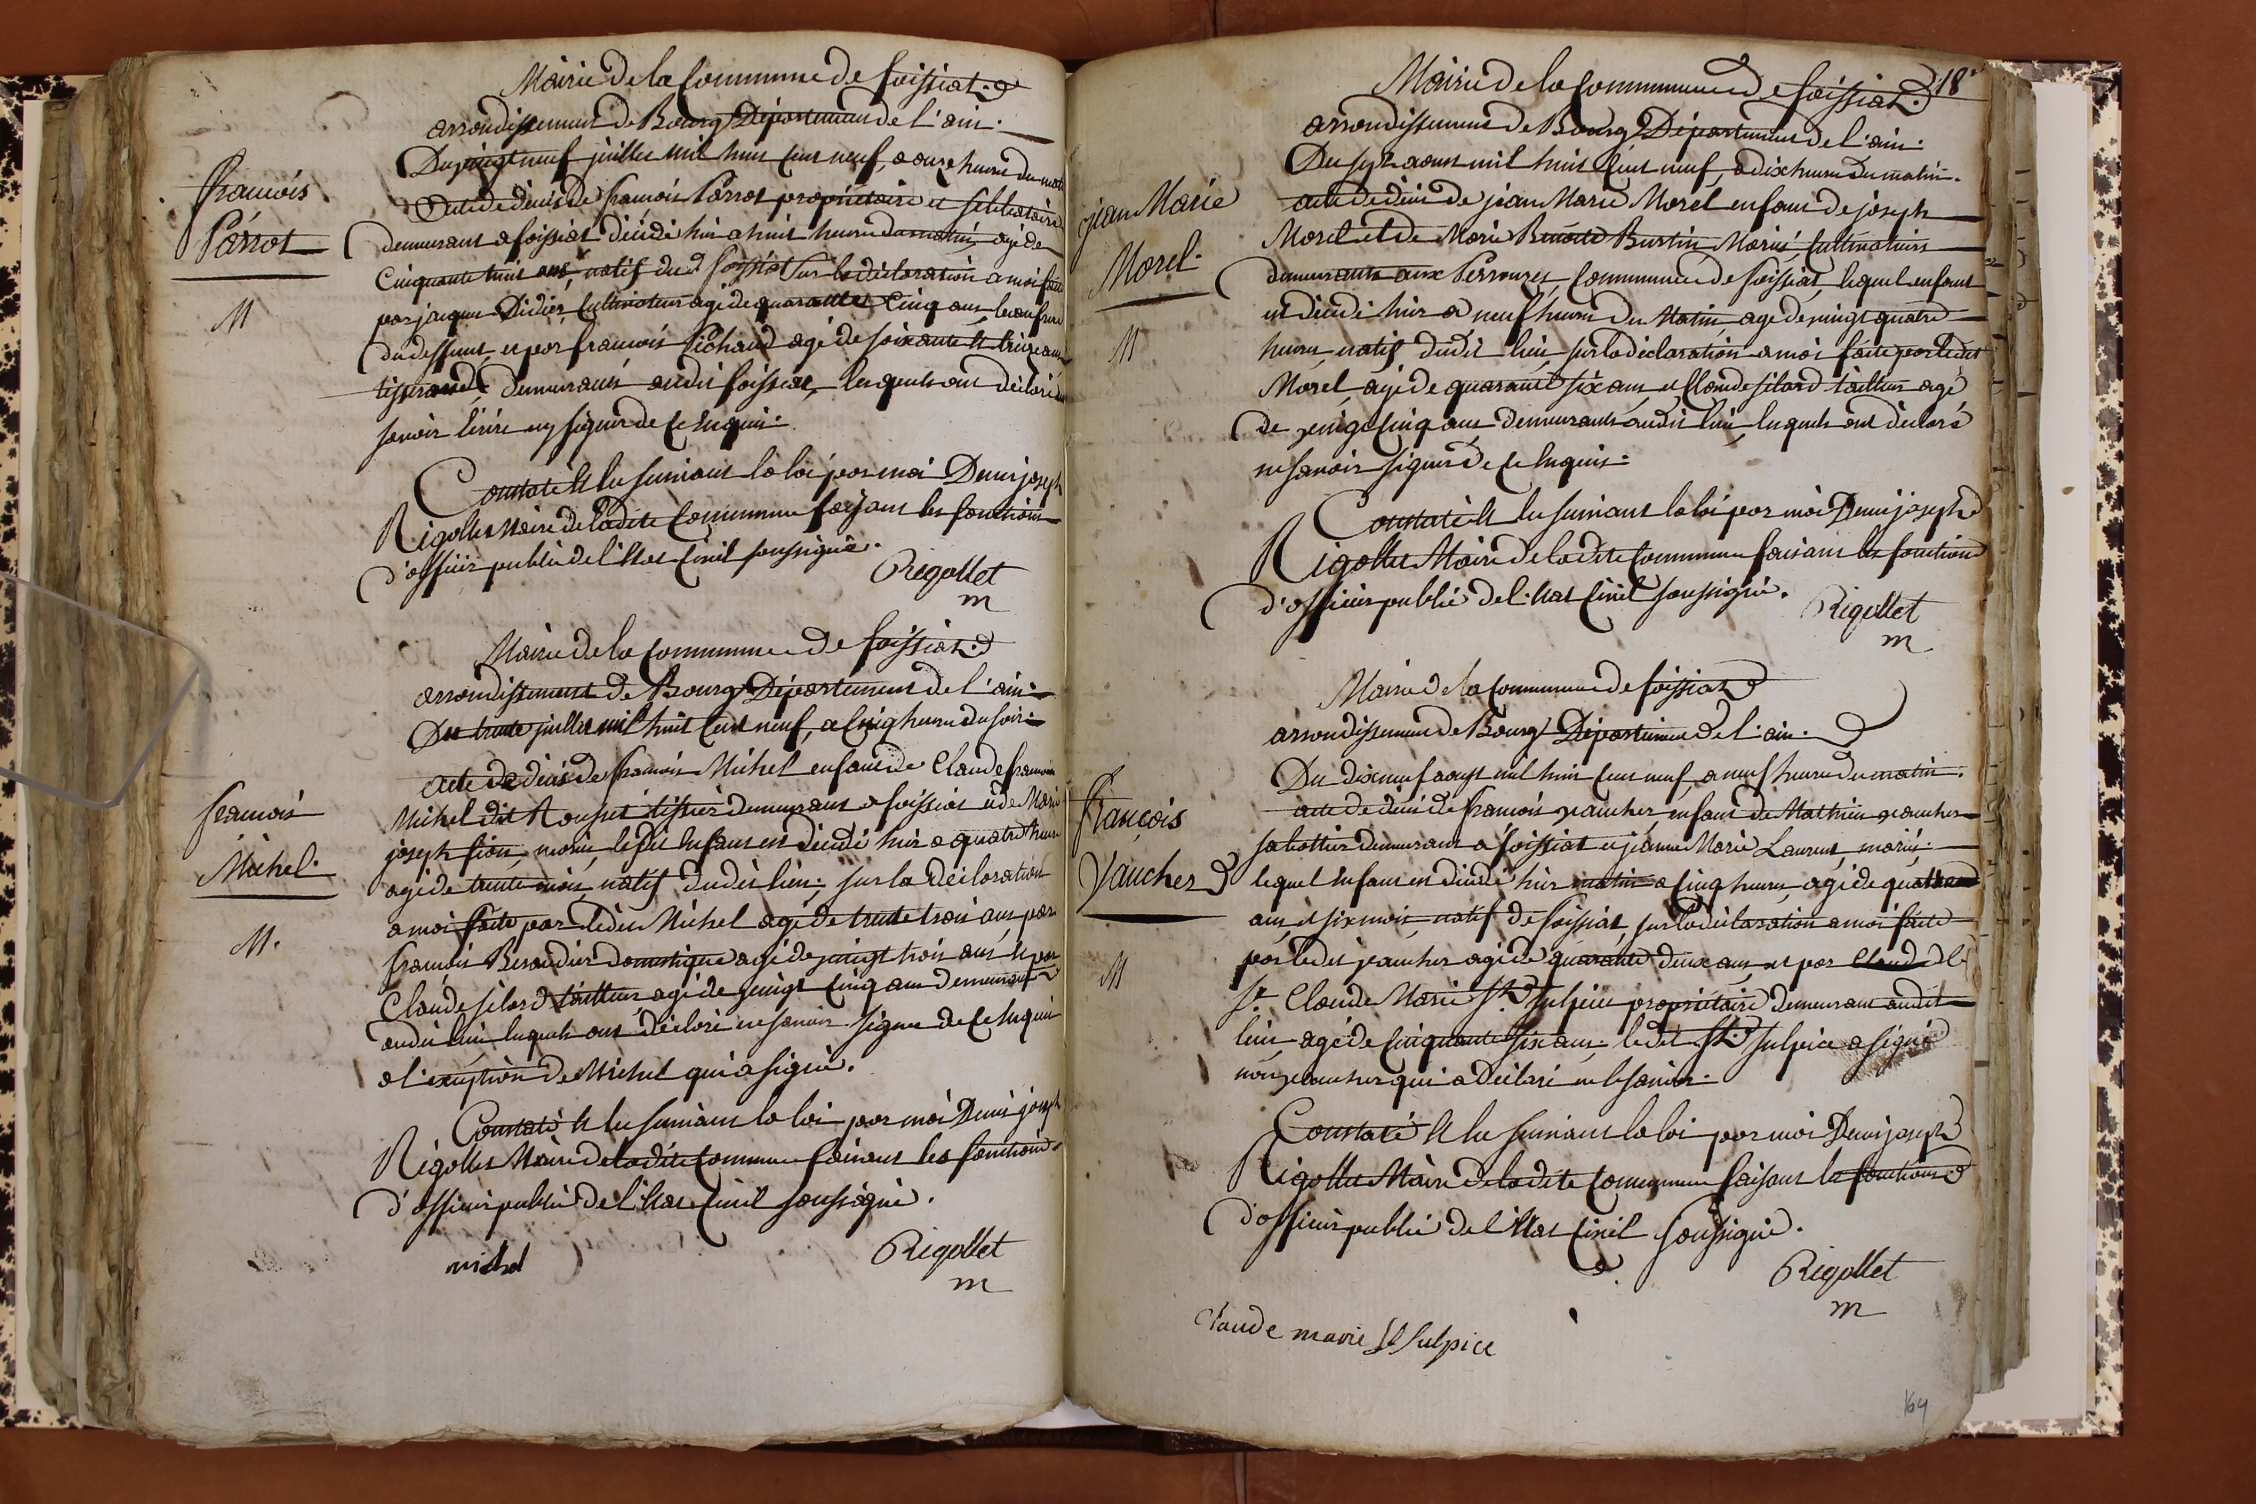 Mairie de la Commune de foissiat.
arrondissement de Bourg Département de l'ain.
Du vingt neuf juillet mil huit cent neuf, a onze heures du matin
françois
Parrot
M
acte de décès de françois Parrot propriétaire et
demeurant a foissiat décédé hier a huit heures du matin, agé de
Cinquante huit ans, natif du d. foissiat sur la déclaration a moi faite
par jacques Didier, Cultivateur agé de quarante Cinq ans, beaufrere
du deffunt, et par françois Pichaud agé de soixante et treize ans
tisserand, demeurants audit foissiat, lesquels ont déclaré
savoir écrire ny signer de ce enquis.
Constaté et lu suivant la loi par moi Denis joseph
Rigollet Maire de ladite Commune faisant les fonctions
d'officier public de l'état Civil soussigné.
Rigollet
m
Mairie de la Commune de foissiat.
arrondissement de Bourg Département de l'ain.
Du trente juillet mil huit Cent neuf, a Cinq heures du soir.
françois
Michel.
M.
acte de décès de françois Michel enfant de Claude françois
Michel dit Rousset tissier demeurant a foissiat et de Marie
joseph fion, mariés, ledit enfant est décédé hier a quatre heures
agé de trente mois, natif dudit lieu; sur la déclaration
a moi faite par ledit Michel agé de trente trois ans, par
françois Beraudier domestique agé de vingt trois ans et par
Claude silard tailleur, agé de vingt Cinq ans demeurant
audit lieu lesquels ont déclaré ne savoir signer de ce enquis
a l'exception de Michel qui a signé.
Constaté et lu suivant la loi par moi Denis joseph
Rigollet Maire de ladite Commune faisant les fonctions
d'officier public de l'état Civil soussigné.
michel
Rigollet
m
18
Mairie de la Commune de foissiat.
arrondissement de Bourg Département de l'ain.
Du sept aout mil huit Cent neuf, a dix heures du matin.
jean Marie
Morel.
M
acte de décès de jean Marie Morel enfant de joseph
Morel et de Marie Benoite Burtin, Mariés, Cultivateurs
demeurants aux Perrouzes, Commune de foissiat, lequel enfant
est décédé hier a neuf heures du Matin, agé de vingt quatre
heures, natif dudit lieu, sur la déclaration a moi faite par ledit
Morel, agé de quarante six ans, et Claude silard tailleur agé
de vingt Cinq ans demeurants audit lieu, lesquels ont déclaré
ne savoir signer de ce enquis.
Constaté et lu suivant la loi par moi Denis joseph
Rigollet Maire de ladite Commune faisant les fonctions
d'officier public de l'état Civil soussigné.
Rigollet
m
Mairie de la Commune de foissiat
arrondissement de Bourg Département de l'ain.
Du dix neuf aoust mil huit Cent neuf, a neuf heures du matin.
François
Vaucher
M
acte de décès de françois vaucher, enfant de Mathieu vaucher
sabottier demeurant a foissiat et jeanne Marie Laurent, mariés.
lequel enfant est décédé hier matin a Cinq heures, agé de quatre
ans, et six mois, natif de foissiat, sur la déclaration a moi faite
par ledit vaucher agé de quarante deux ans, et par Claude
Sr. Claude Marie St. Sulpice propriétaire demeurant audit
lieu agé de Cinquante six ans. ledit St. Sulpice a signé
non vaucher qui a déclaré ne le savoir.
Constaté et lu suivant la loi par moi Denis joseph
Rigollet Maire de ladite Commune faisant les fonctions
d'officier public de l'état Civil soussigné.
Rigollet
m
Claude marie St Sulpice
169